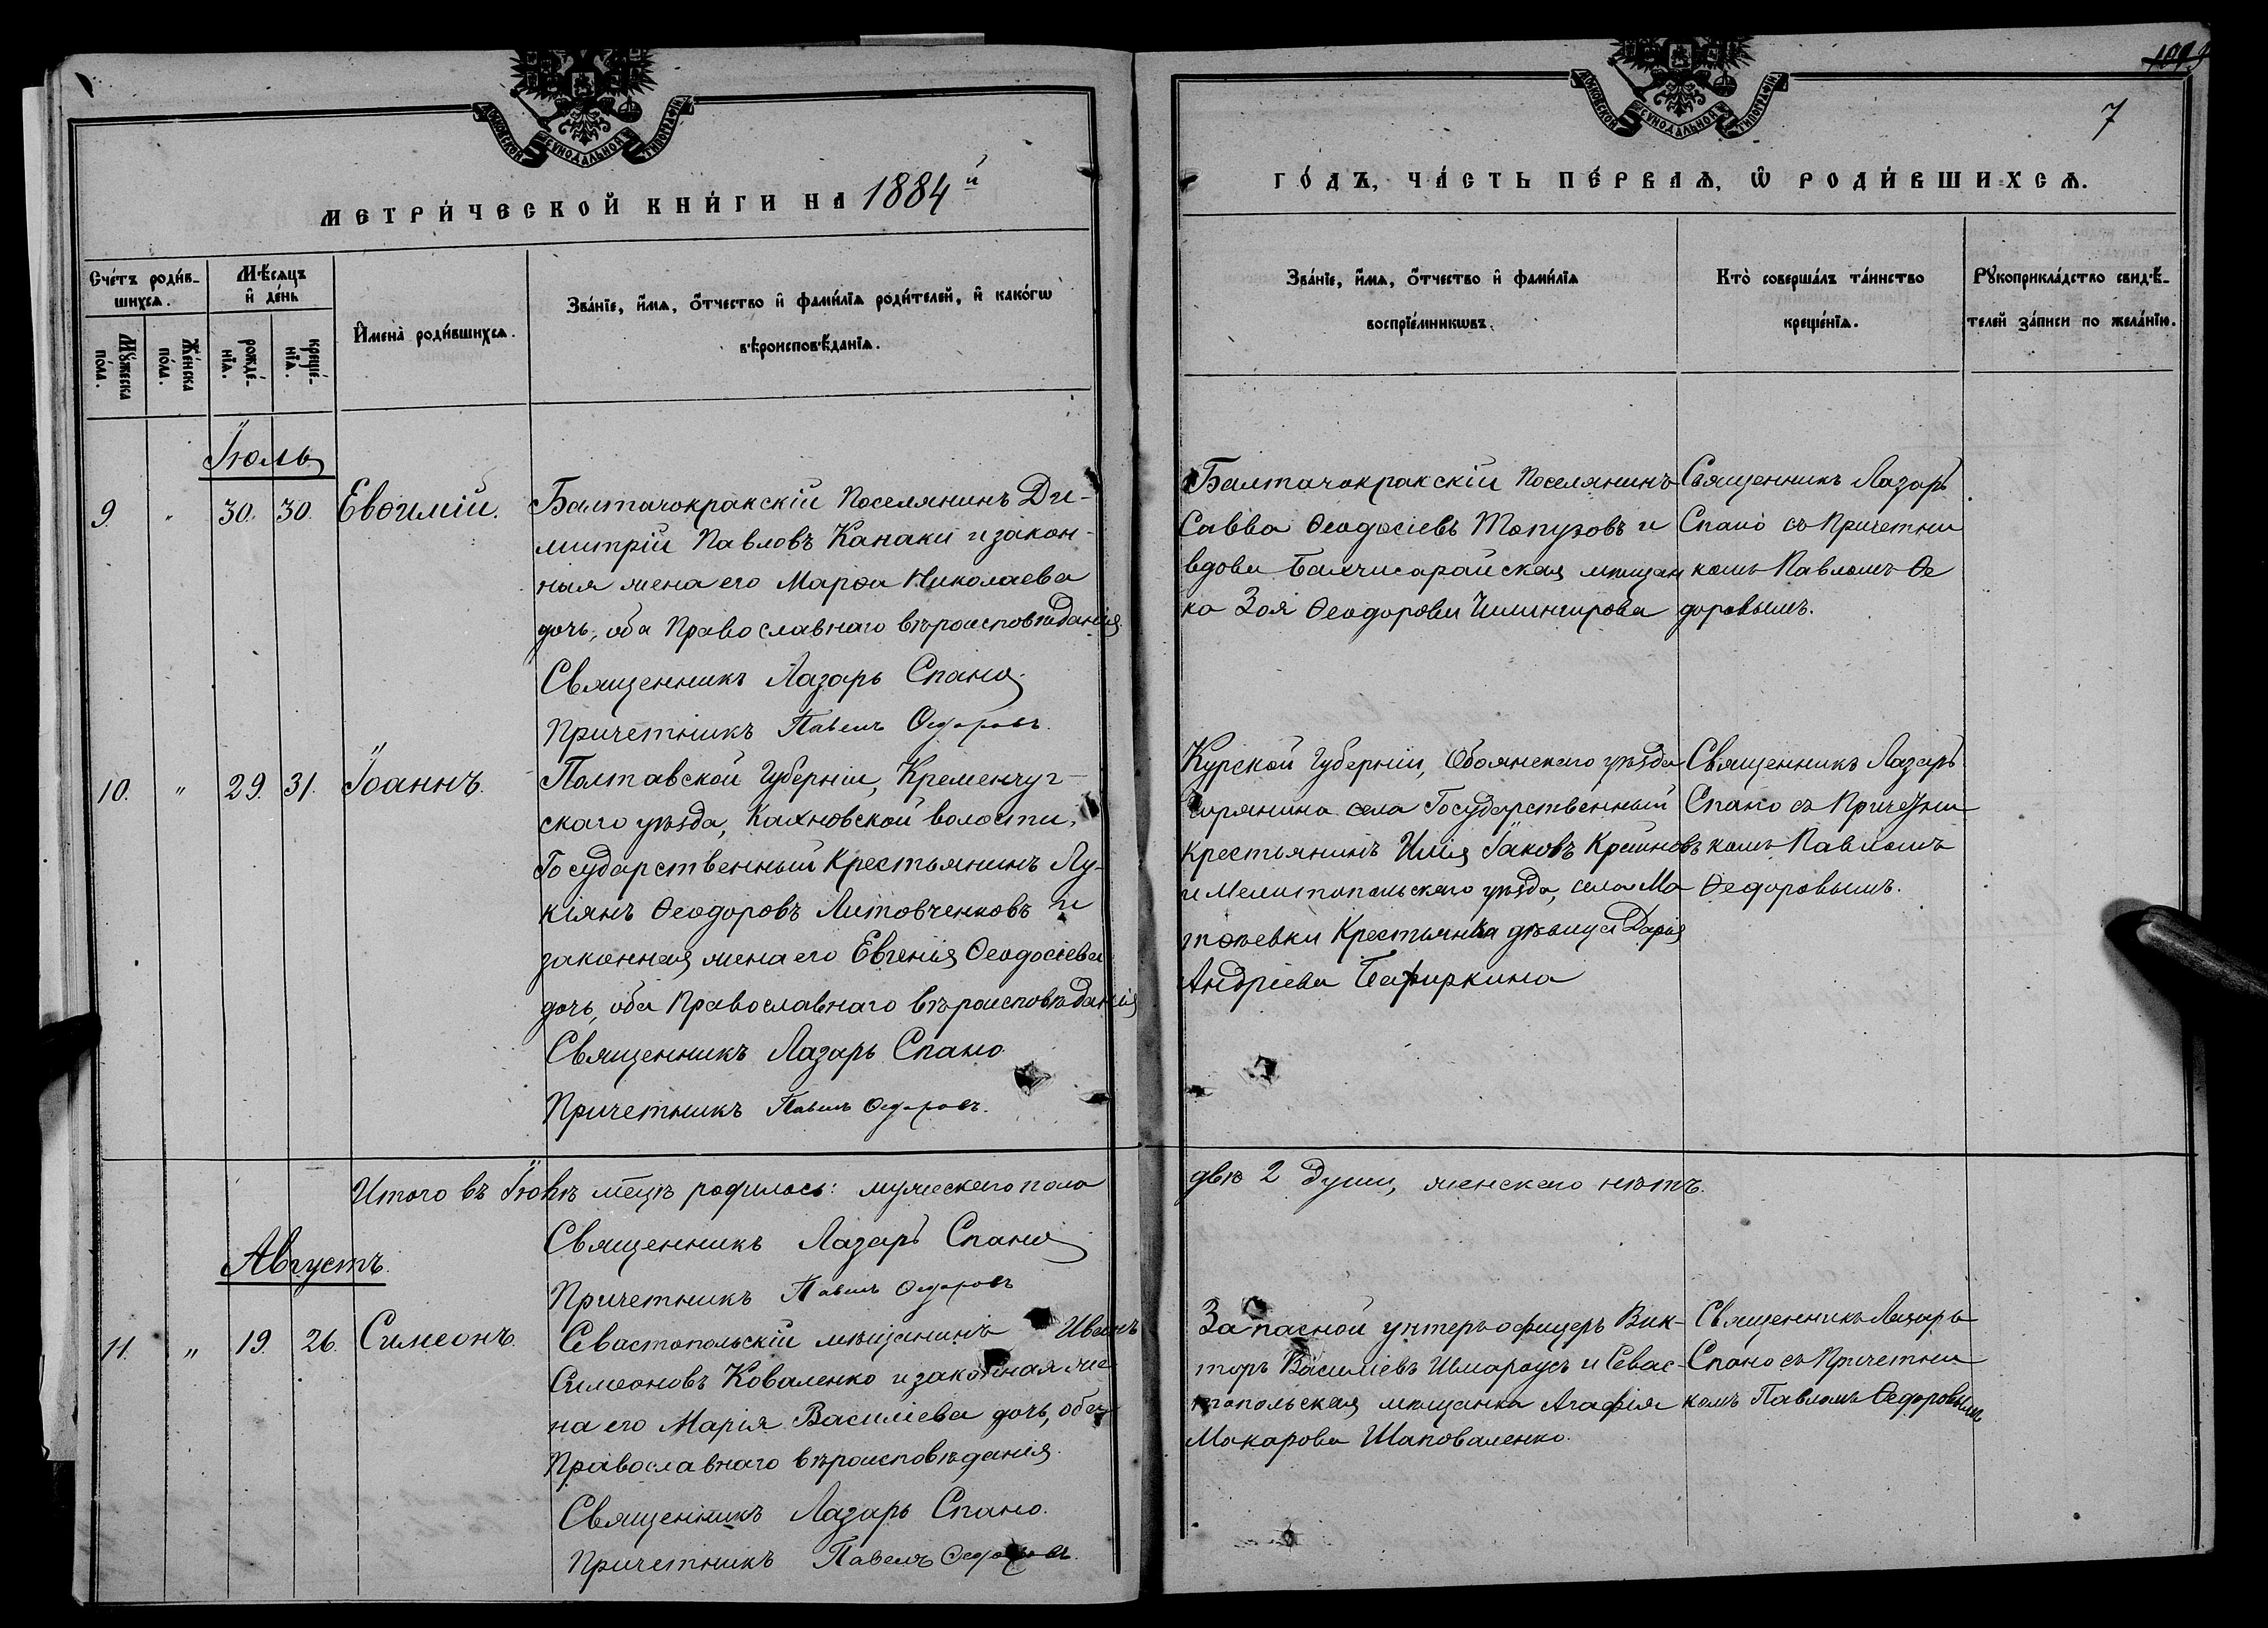 МОСКОВСКОЙ СѴНОДАЛЬНОЙ ТИПОГРАФІИ
МЕТРИ́ЧЕСКОЙ КНИ́ГИ НА 1884 й
Сче́тъ роди́в-
шихсѧ.
Мѣ́сѧцъ
и҆ де́нь
Мꙋ́жеска
по́ла.
Же́нска
по́ла.
рожде́-
нїѧ.
креще́-
нїѧ.
И҆мена̀ роди́вшихсѧ.
Зва́нїе, и҆́мѧ, ѻ҆́тчество и҆ фамї́лїѧ роди́телей, и҆ како́гѡ
вѣроисповѣ́данїѧ.
Іюль
9. " 30. 30. Евѳимій.
Балтачокракскій Поселянинъ Ди-
митрій Павловъ Канаки и закон-
ная жена его Марѳа Николаева
дочь, оба Православнаго вѣроисповѣданія
Священникъ Лазарь Спано
Причетникъ Павелъ Ѳедоровъ.
10. " 29. 31. Іоаннъ.
Полтавской Губерніи, Кременчуг-
скаго уѣзда, Кахновской волости,
Государственный Крестьянинъ Лу-
кіянъ Ѳеодоровъ Литовченковъ и
законная жена его Евгенія Ѳеодосіева
дочь, оба Православнаго вѣроисповѣданія
Священникъ Лазарь Спано
Причетникъ Павелъ Ѳедоровъ.
Итого въ Іюлѣ мѣцѣ родилось: мужескаго пола
Священникъ Лазарь Спано
Причетникъ Павелъ Ѳедоровъ
Августъ.
11. " 19. 26. Симеонъ.
Севастопольскій мѣщанинъ Иванъ
Симеоновъ Коваленко и законная же
на его Марія Василіева дочь, оба
Православнаго вѣроисповѣданія.
Священникъ Лазарь Спано.
Причетникъ Павелъ Ѳедоровъ.
7
МОСКОВСКОЙ СѴНОДАЛЬНОЙ ТИПОГРАФІИ
ГО́ДЪ, ЧА́СТЬ ПЕ́РВАѦ, Ѽ РОДИ́ВШИХСѦ.
Зва́нїе, и҆́мѧ, ѻ҆́тчество и҆ фамї́лїѧ
воспрїе́мникѡвъ.
Кто̀ соверша́лъ та́инство
креще́нїѧ.
Рꙋкоприкла́дство свидѣ́-
телей за́писи по жела́нїю.
Балтачокракскій Поселянинъ
Савва Ѳеодосіевъ Топузовъ и
вдова Бахчисарайская мѣщан
ка Зоя Ѳеодорова Чилингирова
Священникъ Лазарь
Спано съ Причетни
комъ Павломъ Ѳе
доровымъ.
Курской Губерніи, Обоянскаго уѣзда
села Государственный
Крестьянинъ Илія Іаковъ
и Мелитопольскаго уѣзда, села Ма
тѳѣевки Крестьянка дѣвица Дарія
Андріева
Священникъ Лазарь
Спано съ Причетни
комъ Павломъ
Ѳедоровымъ.
двѣ 2 души, женскаго нѣтъ.
Запасной унтеръ офицеръ Вик-
торъ Василіевъ и Севас-
топольская мѣщанка Агафія
Макарова Шаповаленко.
Священникъ Лазарь
Спано съ Причетни
комъ Павломъ Ѳедоровымъ